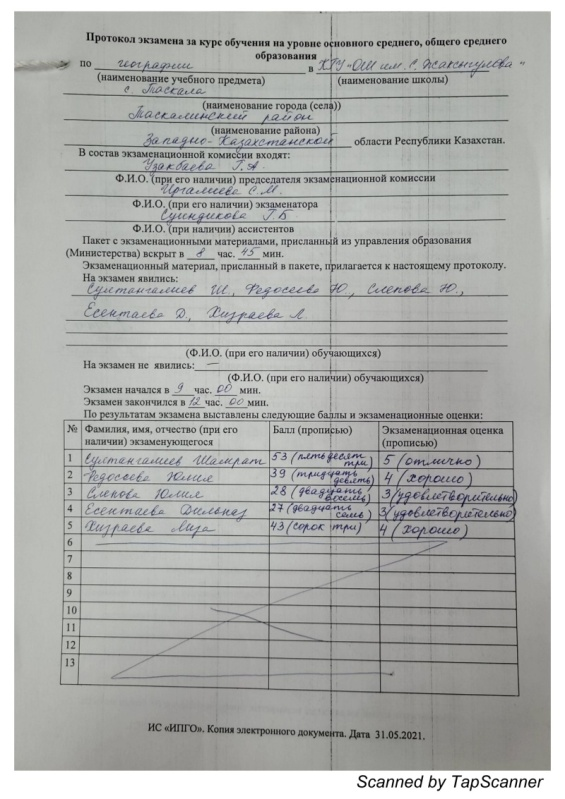 Протокол экзамена за курс обучения на уровне основного среднего, общего среднего
образования
по географии в КГУ «ОШ им. С. Жаксыгулова»
(наименование учебного предмета) (наименование школы)
с. Таскала
(наименование города (села))
Таскалинский район
(наименование района)
Западно-Казахстанской области Республики Казахстан.
В состав экзаменационной комиссии входят:
Узакбаева Г.А
Ф.И.О. (при его наличии) председателя экзаменационной комиссии
Иргалиева С.М.
Ф.И.О. (при его наличии) экзаменатора
Суиндикова Г.Б
Ф.И.О. (при наличии) ассистентов
Пакет с экзаменационными материалами, присланный из управления образования
(Министерства) вскрыт в 8 час. 45 мин.
Экзаменационный материал, присланный в пакете, прилагается к настоящему протоколу.
На экзамен явились:
Султангалиев Ш., Федосеева Ю., Слепова Ю.,
Есентаева Д., Хизраева Л.
(Ф.И.О. (при его наличии) обучающихся)
На экзамен не явились: —
(Ф.И.О. (при его наличии) обучающихся)
Экзамен начался в 9 час. 00 мин.
Экзамен закончился в 12 час. 00 мин.
По результатам экзамена выставлены следующие баллы и экзаменационные оценки:
№ Фамилия, имя, отчество (при его наличии) экзаменующегося Балл (прописью) Экзаменационная оценка (прописью)
1 Султангалиев Шамрат 53 (пятьдесят три) 5 (отлично)
2 Федосеева Юлия 39 (тридцать девять) 4 (хорошо)
3 Слепова Юлия 28 (двадцать восемь) 3 (удовлетворительно)
4 Есентаева Дильназ 27 (двадцать семь) 3 (удовлетворительно)
5 Хизраева Лиза 43 (сорок три) 4 (хорошо)
6
7
8
9
10
11
12
13
ИС «ИПГО». Копия электронного документа. Дата 31.05.2021.
Scanned by TapScanner